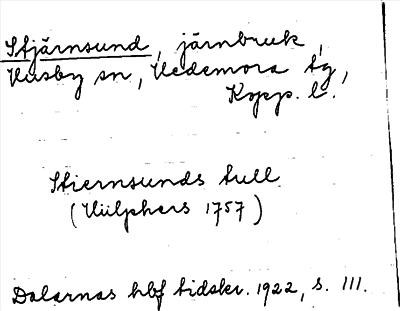 Stjärnsund, järnbruk,
Husby sn, Hedemora tg,
Kopp. l.
Stiernsunds tull
(Hülphers 1757)
Dalarnas hbf tidskr. 1922, s. 111.